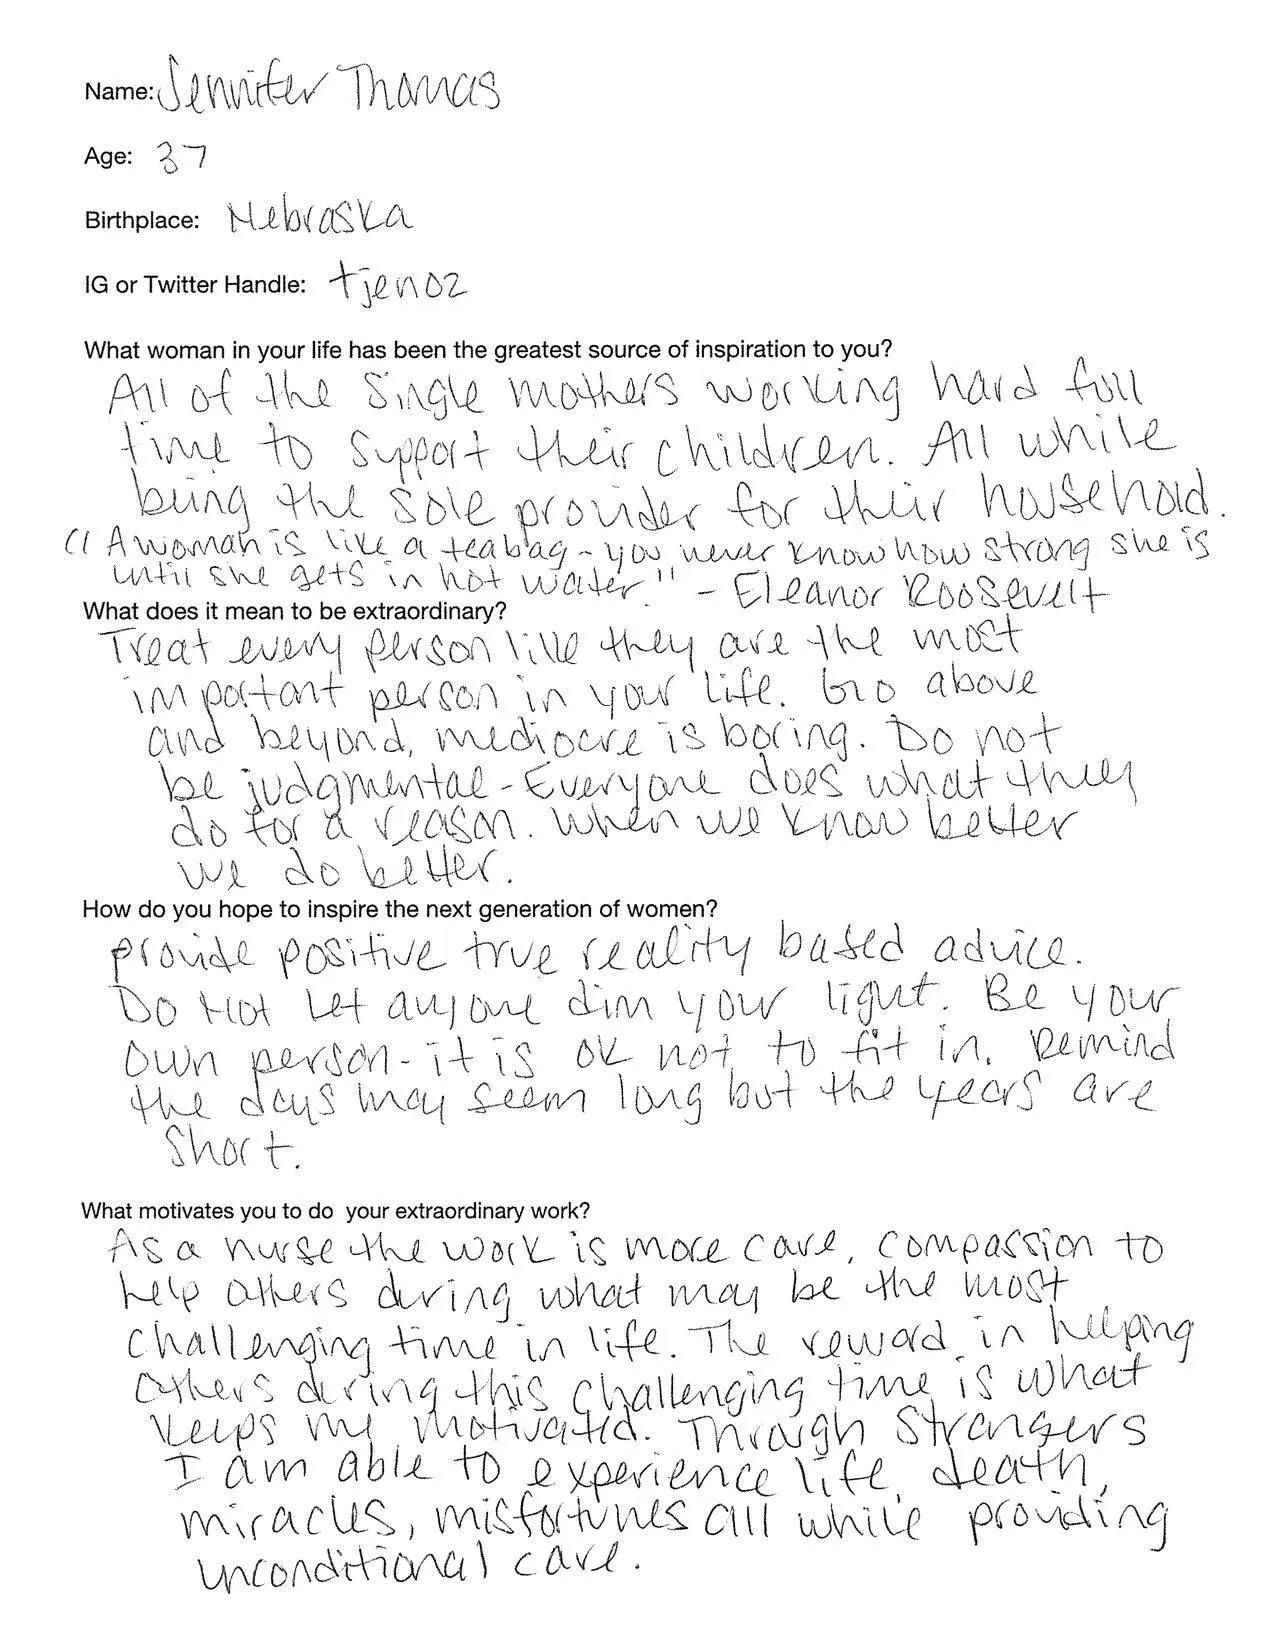 Name: Jennifer Thomas
Age: 37
Birthplace: Nebraska
IG or Twitter Handle: tjen02
What woman in your life has been the greatest source of inspiration to you?
All of the single mothers working hard full
time to support their children. All while
being the sole provider for their household.
"A woman is like a teabag - you never know how strong she is
until she gets in hot water." - Eleanor Roosevelt
What does it mean to be extraordinary?
Treat every person like they are the most
important person in your life. Go above
and beyond, mediocre is boring. Do not
be judgmental - Everyone does what they
do for a reason. When we know better
we do better.
How do you hope to inspire the next generation of women?
Provide positive true reality based advice.
Do not let anyone dim your light. Be your
own person - it is ok not to fit in. Remind
the days may seem long but the years are
short.
What motivates you to do your extraordinary work?
As a nurse the work is more care, compassion to
help others during what may be the most
challenging time in life. The reward in helping
others during this challenging time is what
keeps me motivated. Through strangers
I am able to experience life, death,
miracles, misfortunes all while providing
unconditional care.